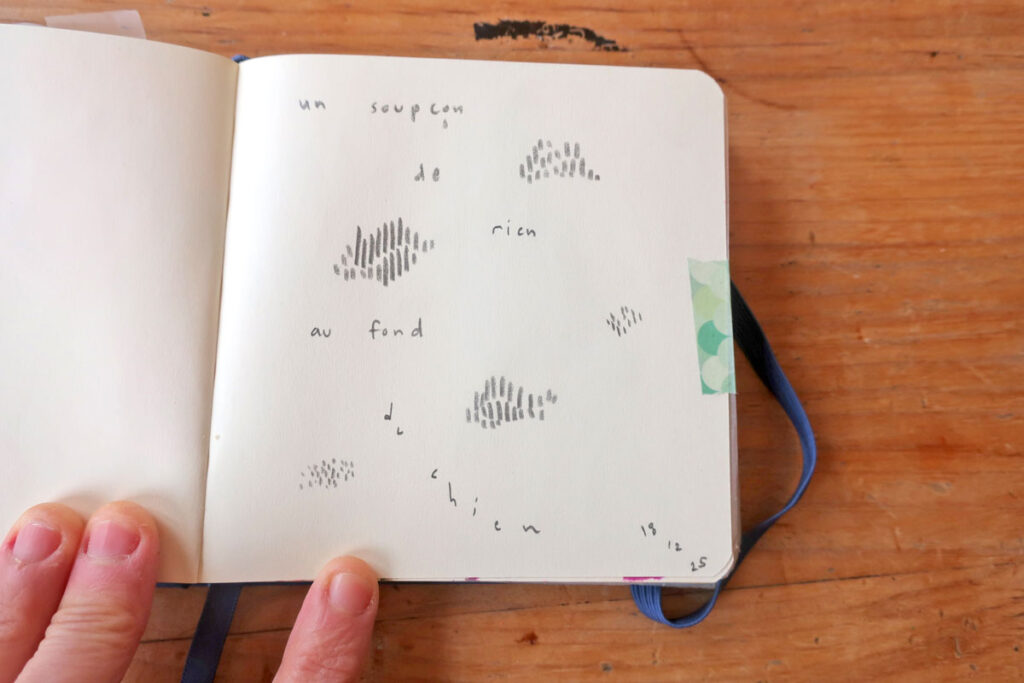 un soupçon
de
rien
au fond
du
chien
18
12
25